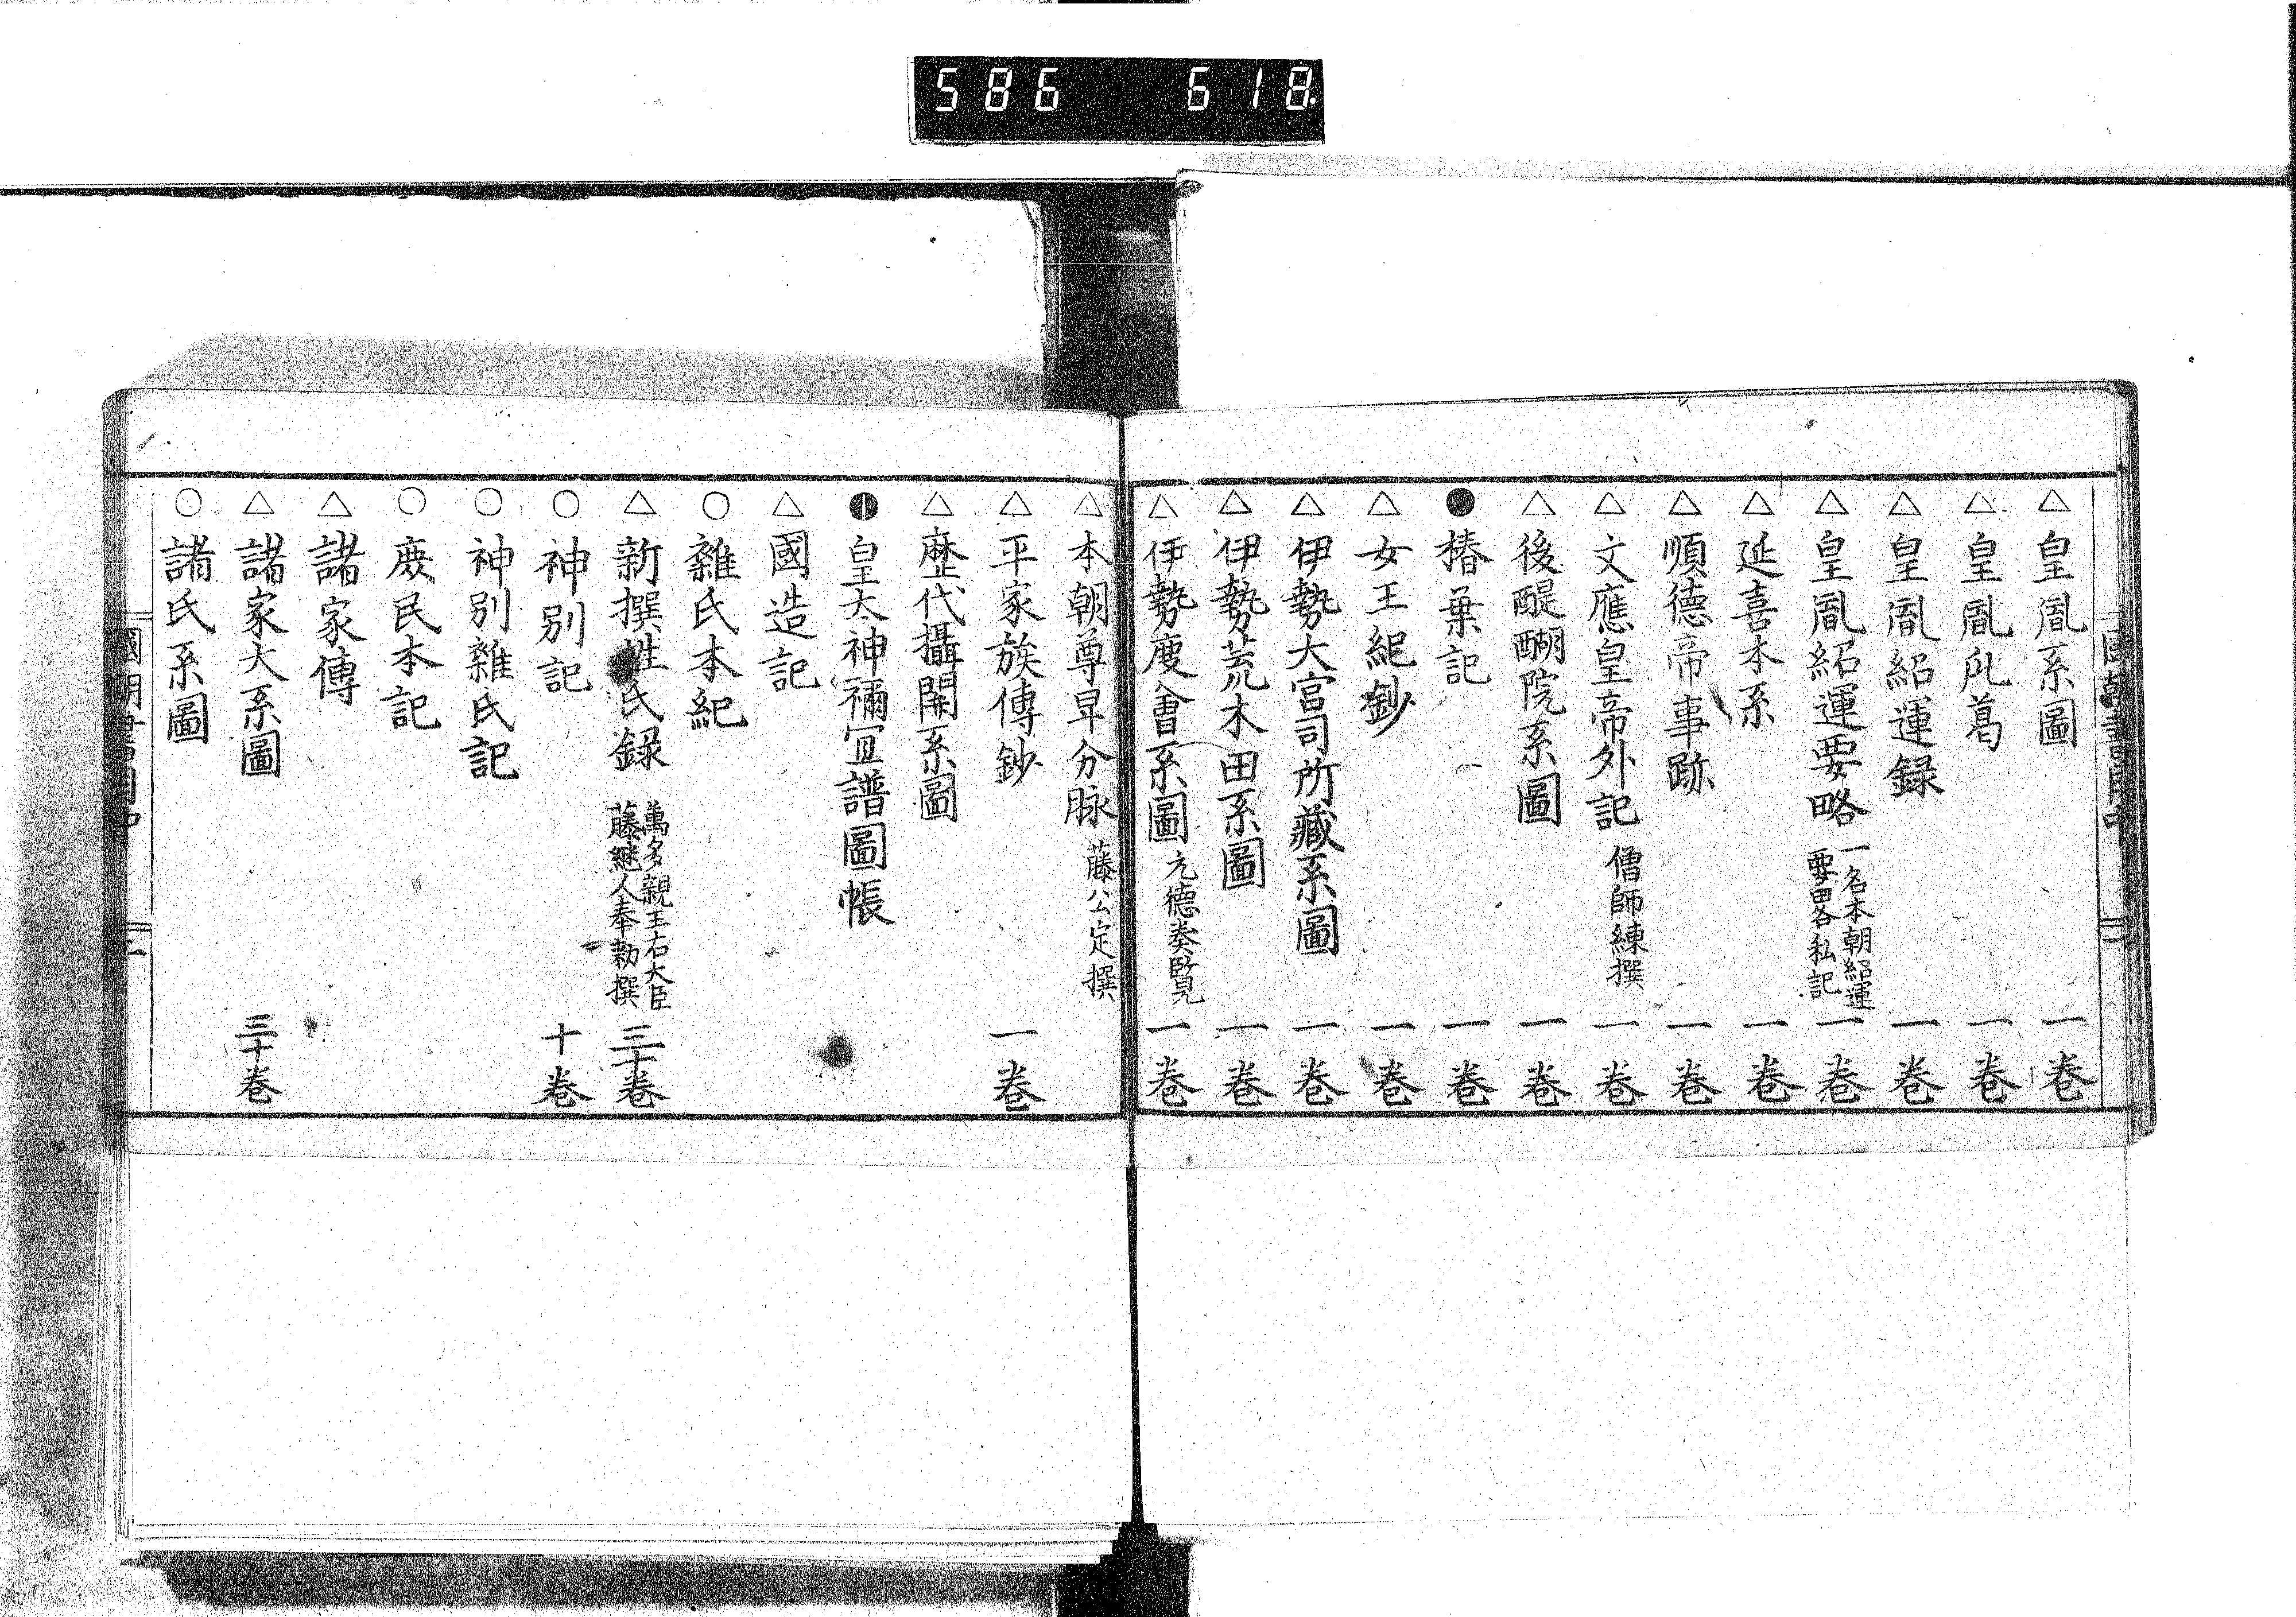 586 618.
△皇胤系圖 一卷
△皇胤瓜葛 一卷
△皇胤紹運録 一卷
△皇胤紹運要略 一名本朝紹運
要畧私記 一卷
△延喜本系 一卷
△順德帝事跡 一卷
△文應皇帝外記 僧師練撰 一卷
△後醍醐院系圖 一卷
●椿葉記 一卷
△女王紀鈔 一卷
△伊勢大宮司所藏系圖 一卷
△伊勢荒木田系圖 一卷
△伊勢度會系圖 元德奏覽 一卷
△本朝尊卑分脉 藤公定撰
△平家族傳鈔 一卷
△歷代攝関系圖
皇太神禰宜譜圖帳
△國造記
○雜氏本紀
△新撰姓氏録 萬多親王右大臣
藤継人奉勅撰 三十卷
○神別記 十卷
○神別雜氏記
○庶民本記
△諸家傳
△諸家大系圖 三十卷
○諸氏系圖